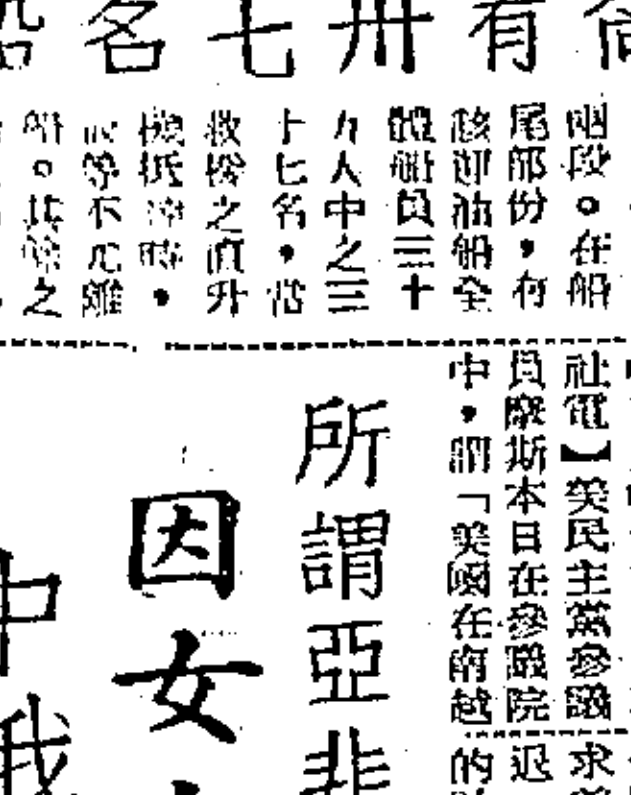 尙有卅七名船
兩段。在船
尾部份，有
該油船全
體船員三十
九人中之三
十七名，當
救援之直升
機抵達時，
等不允離
船。其餘之
社電】美民主黨參議
員摩斯本日在參議院
中，謂「美國在南越
求
迟
的
所謂亞非
因女
中